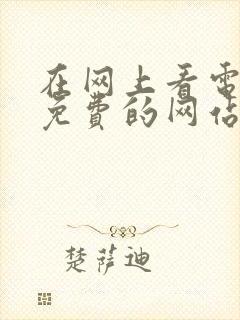 在网上看电
免费的网站
楚萨迪